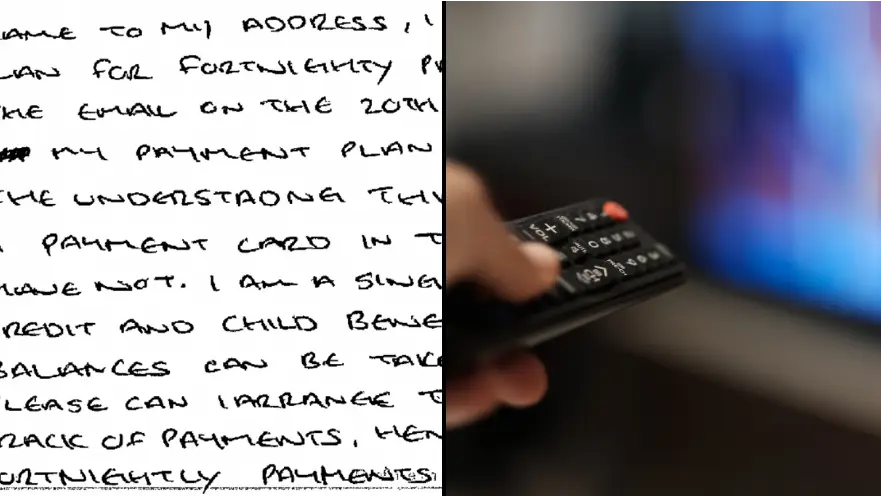 AME TO MY ADDRESS, I
LAN FOR FORTNIGHTY PA
THE EMAIL ON THE 20TH
MY PAYMENT PLAN
THE UNDERSTADNG TH
PAYMENT CARD IN T
HAVE NOT. I AM A SING
REDIT AND CHILD BENE
BALANCES CAN BE TAKE
LEASE CAN I ARRANGE T
RACK OF PAYMENTS, HEN
ORTNIGHTLY PAYMENTS
VOL +